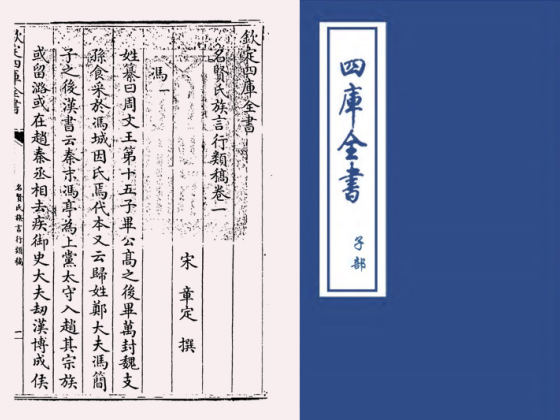 欽定四庫全書
名賢氏族言行類稿卷一
宋 章定 撰
馮一
姓纂曰周文王第十五子畢公高之後畢萬封魏支
孫食采於馮城因氏焉代本又云歸姓鄭大夫馮簡
子之後漢書云秦末馮亭為上黨太守入趙其宗族
或留潞或在趙秦丞相去疾御史大夫劫漢博成侯
欽定四庫全書
名賢氏族言行類稿
四庫全書
子部